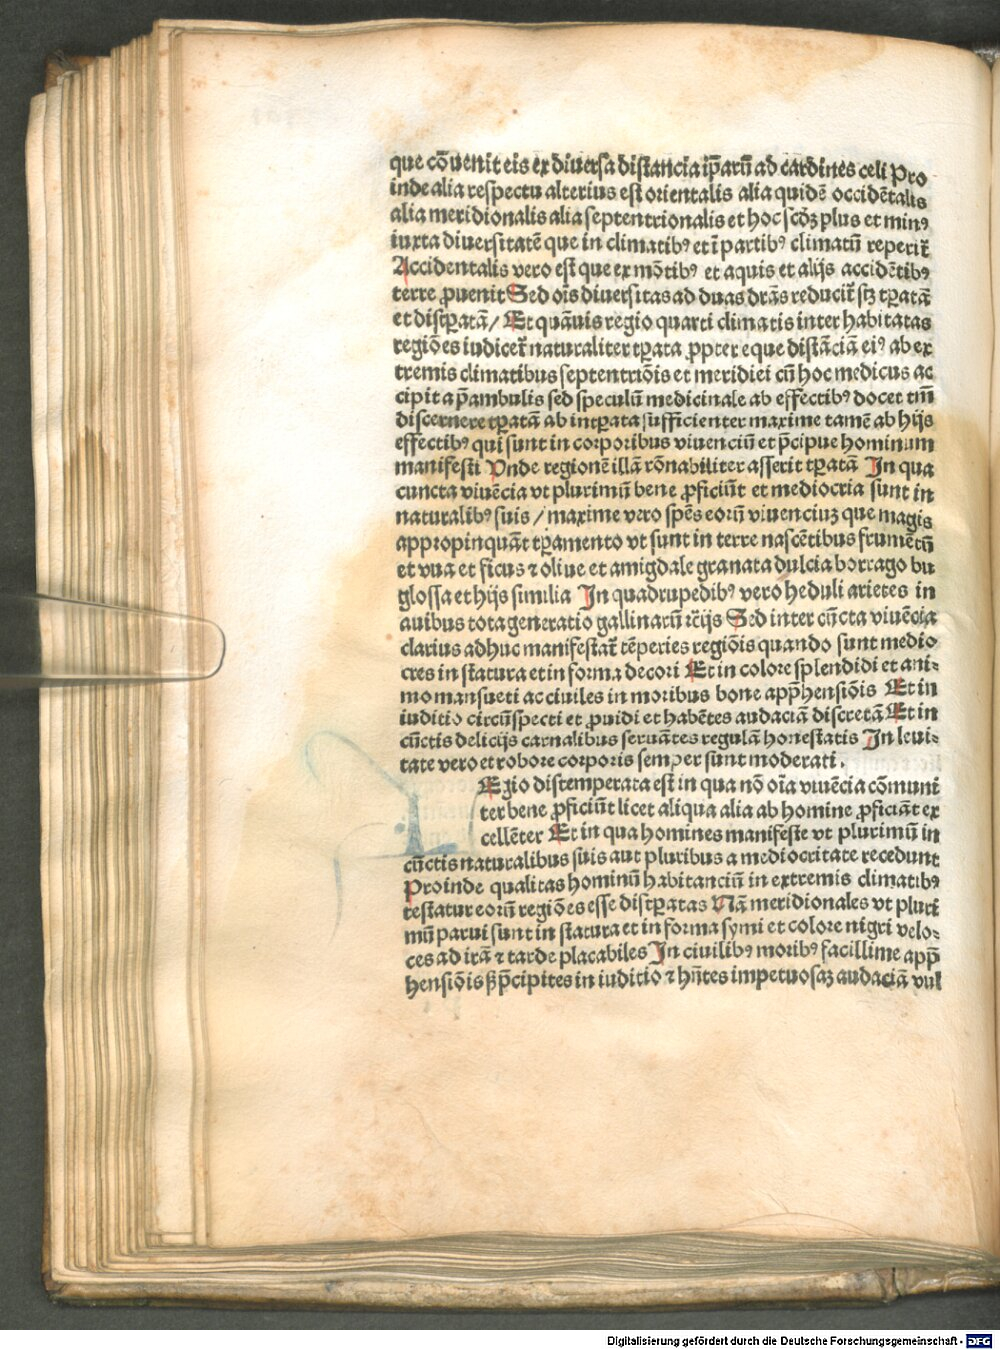 que cōuenit eis ex diuersa distancia ip̄arū ad cardines celi Pro
inde alia respectu alterius est orientalis alia quidē occidētalis
alia meridionalis alia septentrionalis et hoc scd̄ꝫ plus et minꝰ
iuxta diuersitatē que in climatibꝰ et ī partibꝰ climatū reperit᷑
Accidentalis vero est que ex mōtibꝰ et aquis et alijs accidētibꝰ
terre ꝓuenit Sed oīs diuersitas ad duas dr̄as reducit᷑ scꝫ tꝑatā
et distꝑatā / Et quāuis regio quarti climatis inter habitatas
regiōes iudicet᷑ naturaliter tꝑata ꝓpter eque distāciā eiꝰ ab ex
tremis climatibus septentriōis et meridiei cū hoc medicus ac
cipit a p̄ambulis sed speculū medicinale ab effectibꝰ docet tm̄
discernere tꝑatā ab intꝑata sufficienter maxime tamē ab hijs
effectibꝰ qui sunt in corporibus viuenciū et p̄cipue hominum
manifesti Vnde regionē illā rōnabiliter asserit tꝑatā In qua
cuncta viuēcia vt plurimū bene ꝓficiūt et mediocria sunt in
naturalibꝰ suis / maxime vero spēs eorū viuenciuꝫ que magis
appropinquāt tꝑamento vt sunt in terre nascētibus frumētū
et vua et ficus ⁊ oliue et amigdale granata dulcia borrago bu
glossa et hijs similia In quadrupedibꝰ vero heduli arietes in
auibus tota generatio gallinarū ⁊c̄ijs Sed inter cūcta viuēcia
clarius adhuc manifestat᷑ tēperies regiōis quando sunt medio
cres in statura et in forma decori Et in colore splendidi et ani⸗
mo mansueti ac ciuiles in moribus bone app̄hensiōis Et in
iuditio circūspecti et ꝓuidi et habētes audaciā discretā Et in
cūctis delicijs carnalibus seruātes regulā honestatis In leui⸗
tate vero et robore corporis semper sunt moderati .
Egio distemperata est in qua nō oīa viuēcia cōmuni
ter bene ꝓficiūt licet aliqua alia ab homine ꝓficiāt ex
cellēter Et in qua homines manifeste vt plurimū in
cūctis naturalibus suis aut pluribus a mediocritate recedunt
Proinde qualitas hominū habitanciū in extremis climatibꝰ
testatur eorū regiōes esse distꝑatas Nā meridionales vt pluri
mū parui sunt in statura et in forma symi et colore nigri velo⸗
ces ad irā ⁊ tarde placabiles In ciuilibꝰ moribꝰ facillime app̄
hensiōis sꝫ p̄cipites in iuditio ⁊ hn̄tes impetuosaꝫ audaciā vul
Digitalisierung gefördert durch die Deutsche Forschungsgemeinschaft - DFG